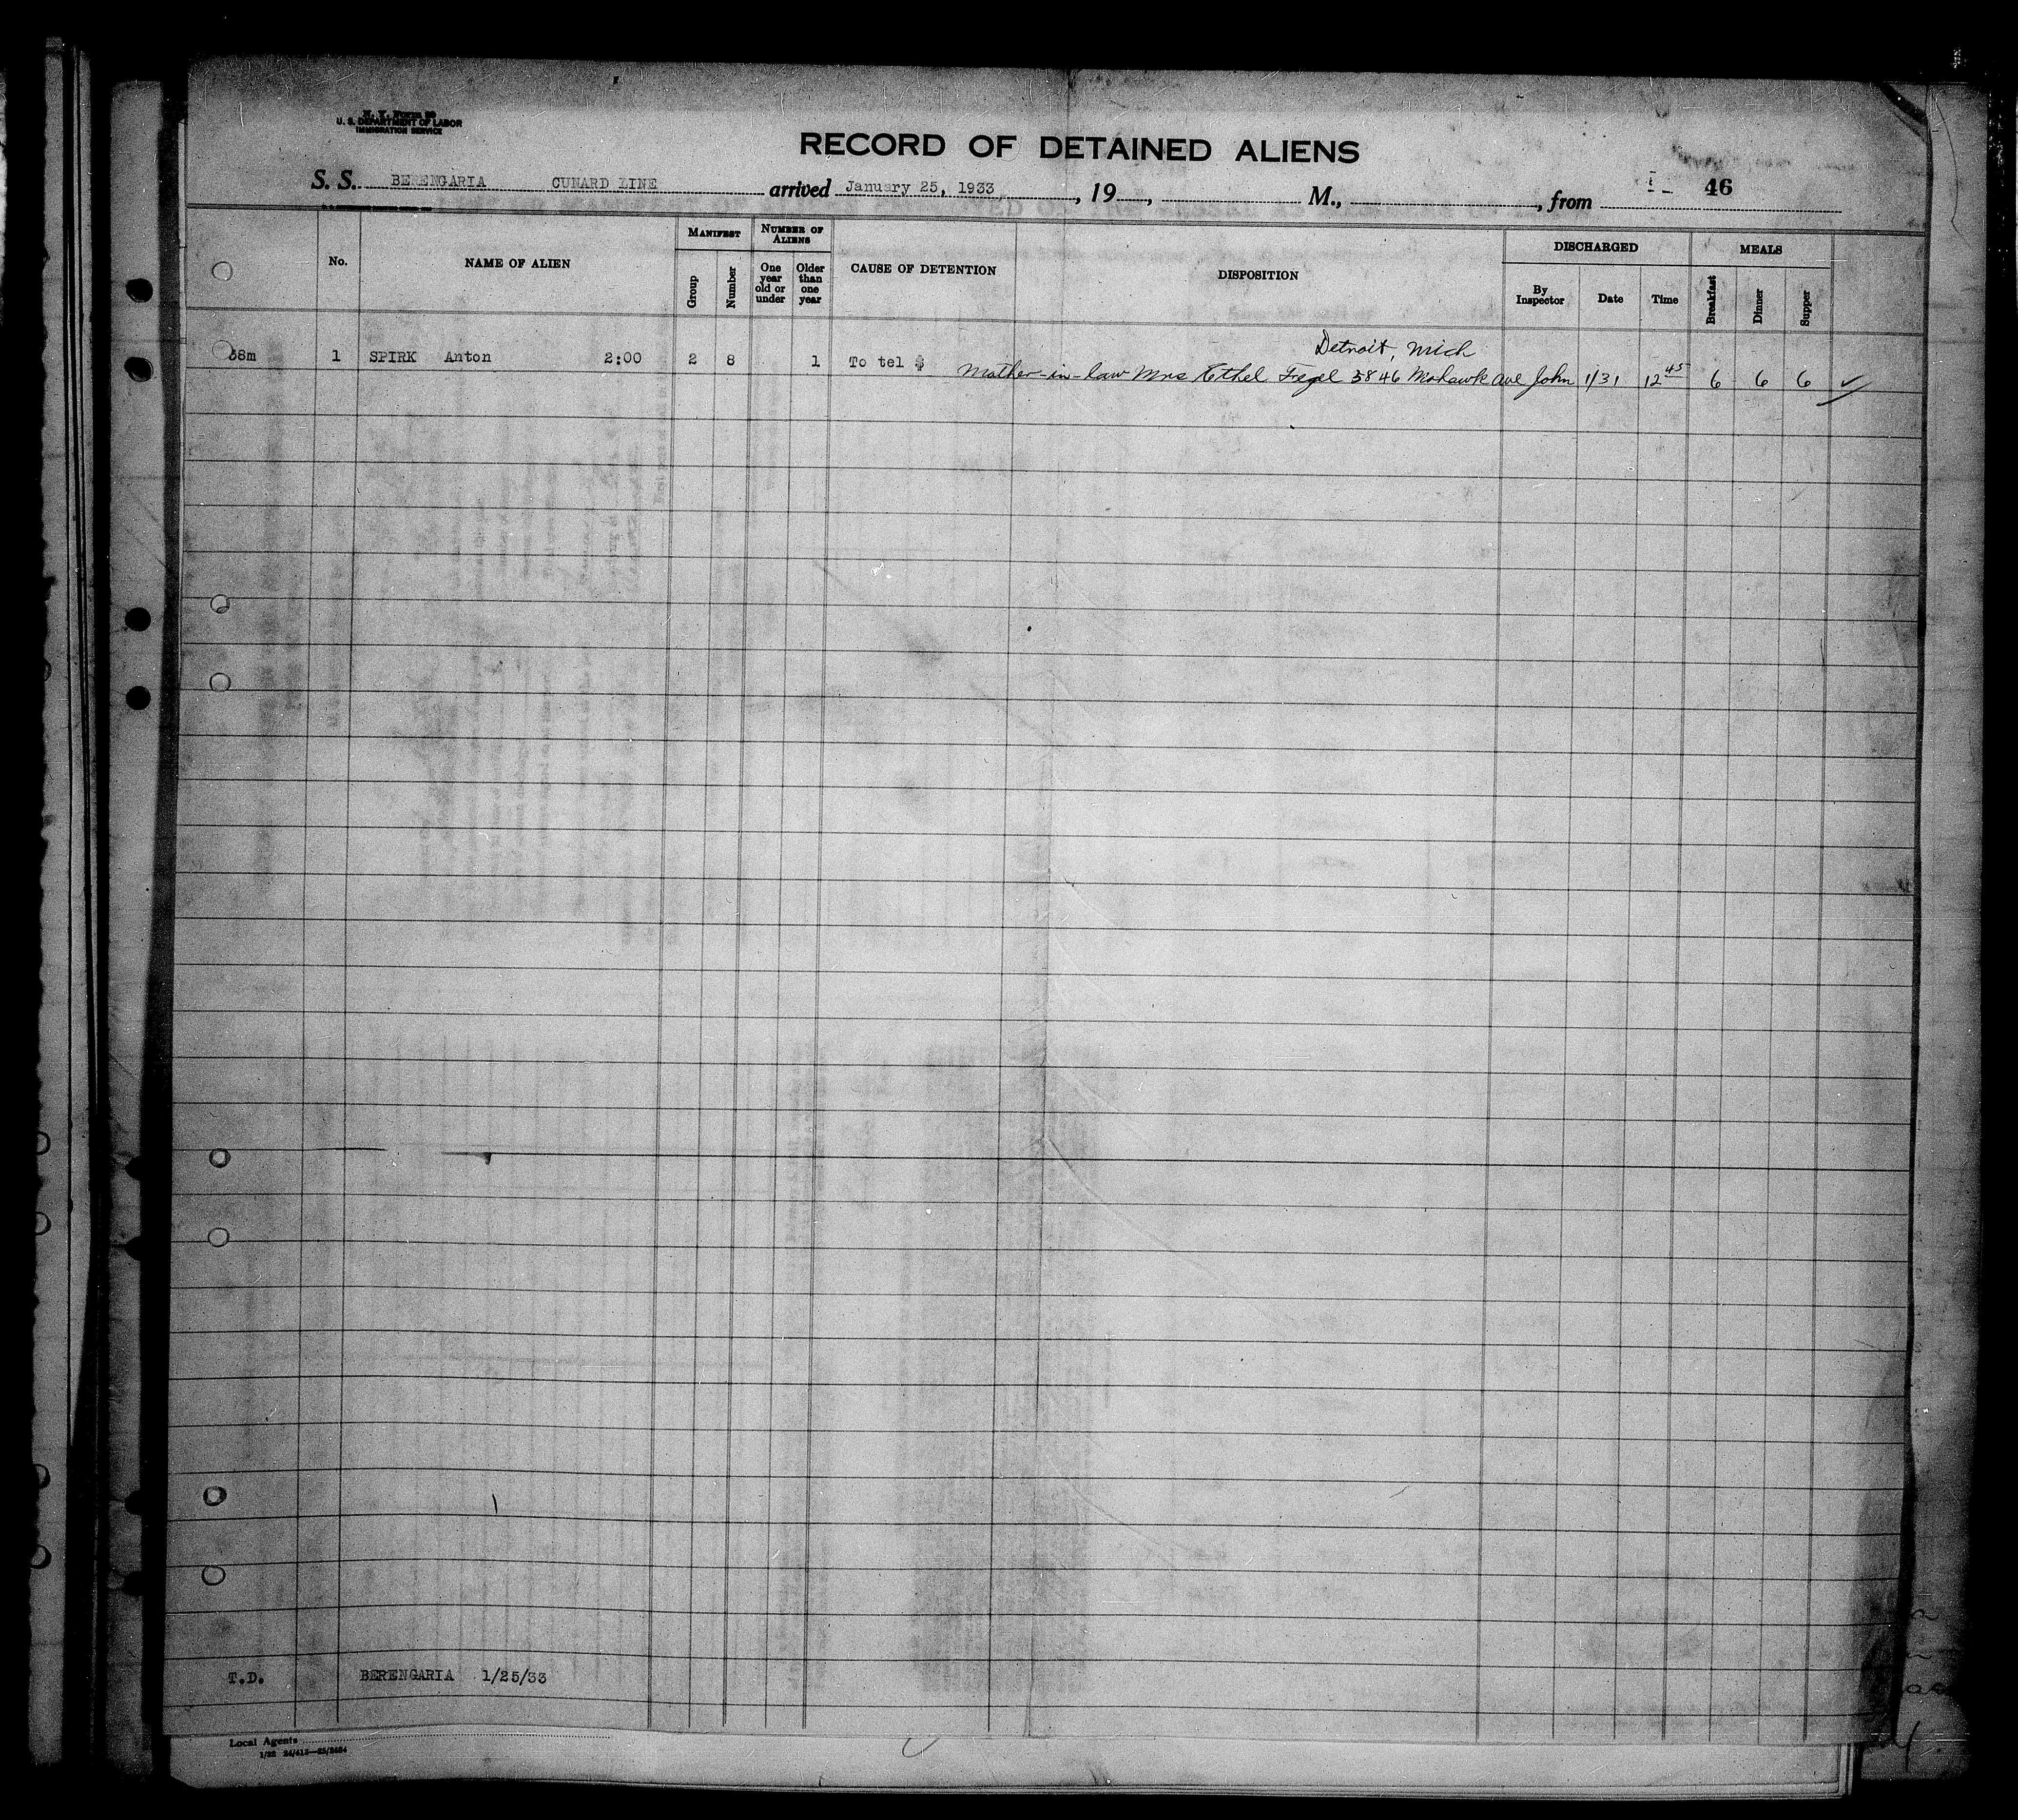 U. S. DEPARTMENT OF LABOR
IMMIGRATION SERVICE
RECORD OF DETAINED ALIENS
S. S. BERENGARIA CUNARD LINE arrived January 25, 1933, 19 , M., , from 46
No. NAME OF ALIEN MANIFEST Group Number NUMBER OF ALIENS One year old or under Older than one year CAUSE OF DETENTION DISPOSITION DISCHARGED By Inspector Date Time MEALS Breakfast Dinner Supper
Detroit, Mich
1 SPIRK Anton 2:00 2 8 1 To tel $
Mother-in-law Mrs Ethel 3846 Mohawk Ave John 1/31 12 45 6 6 6 ✓
T.D. BERENGARIA 1/25/33
Local Agents